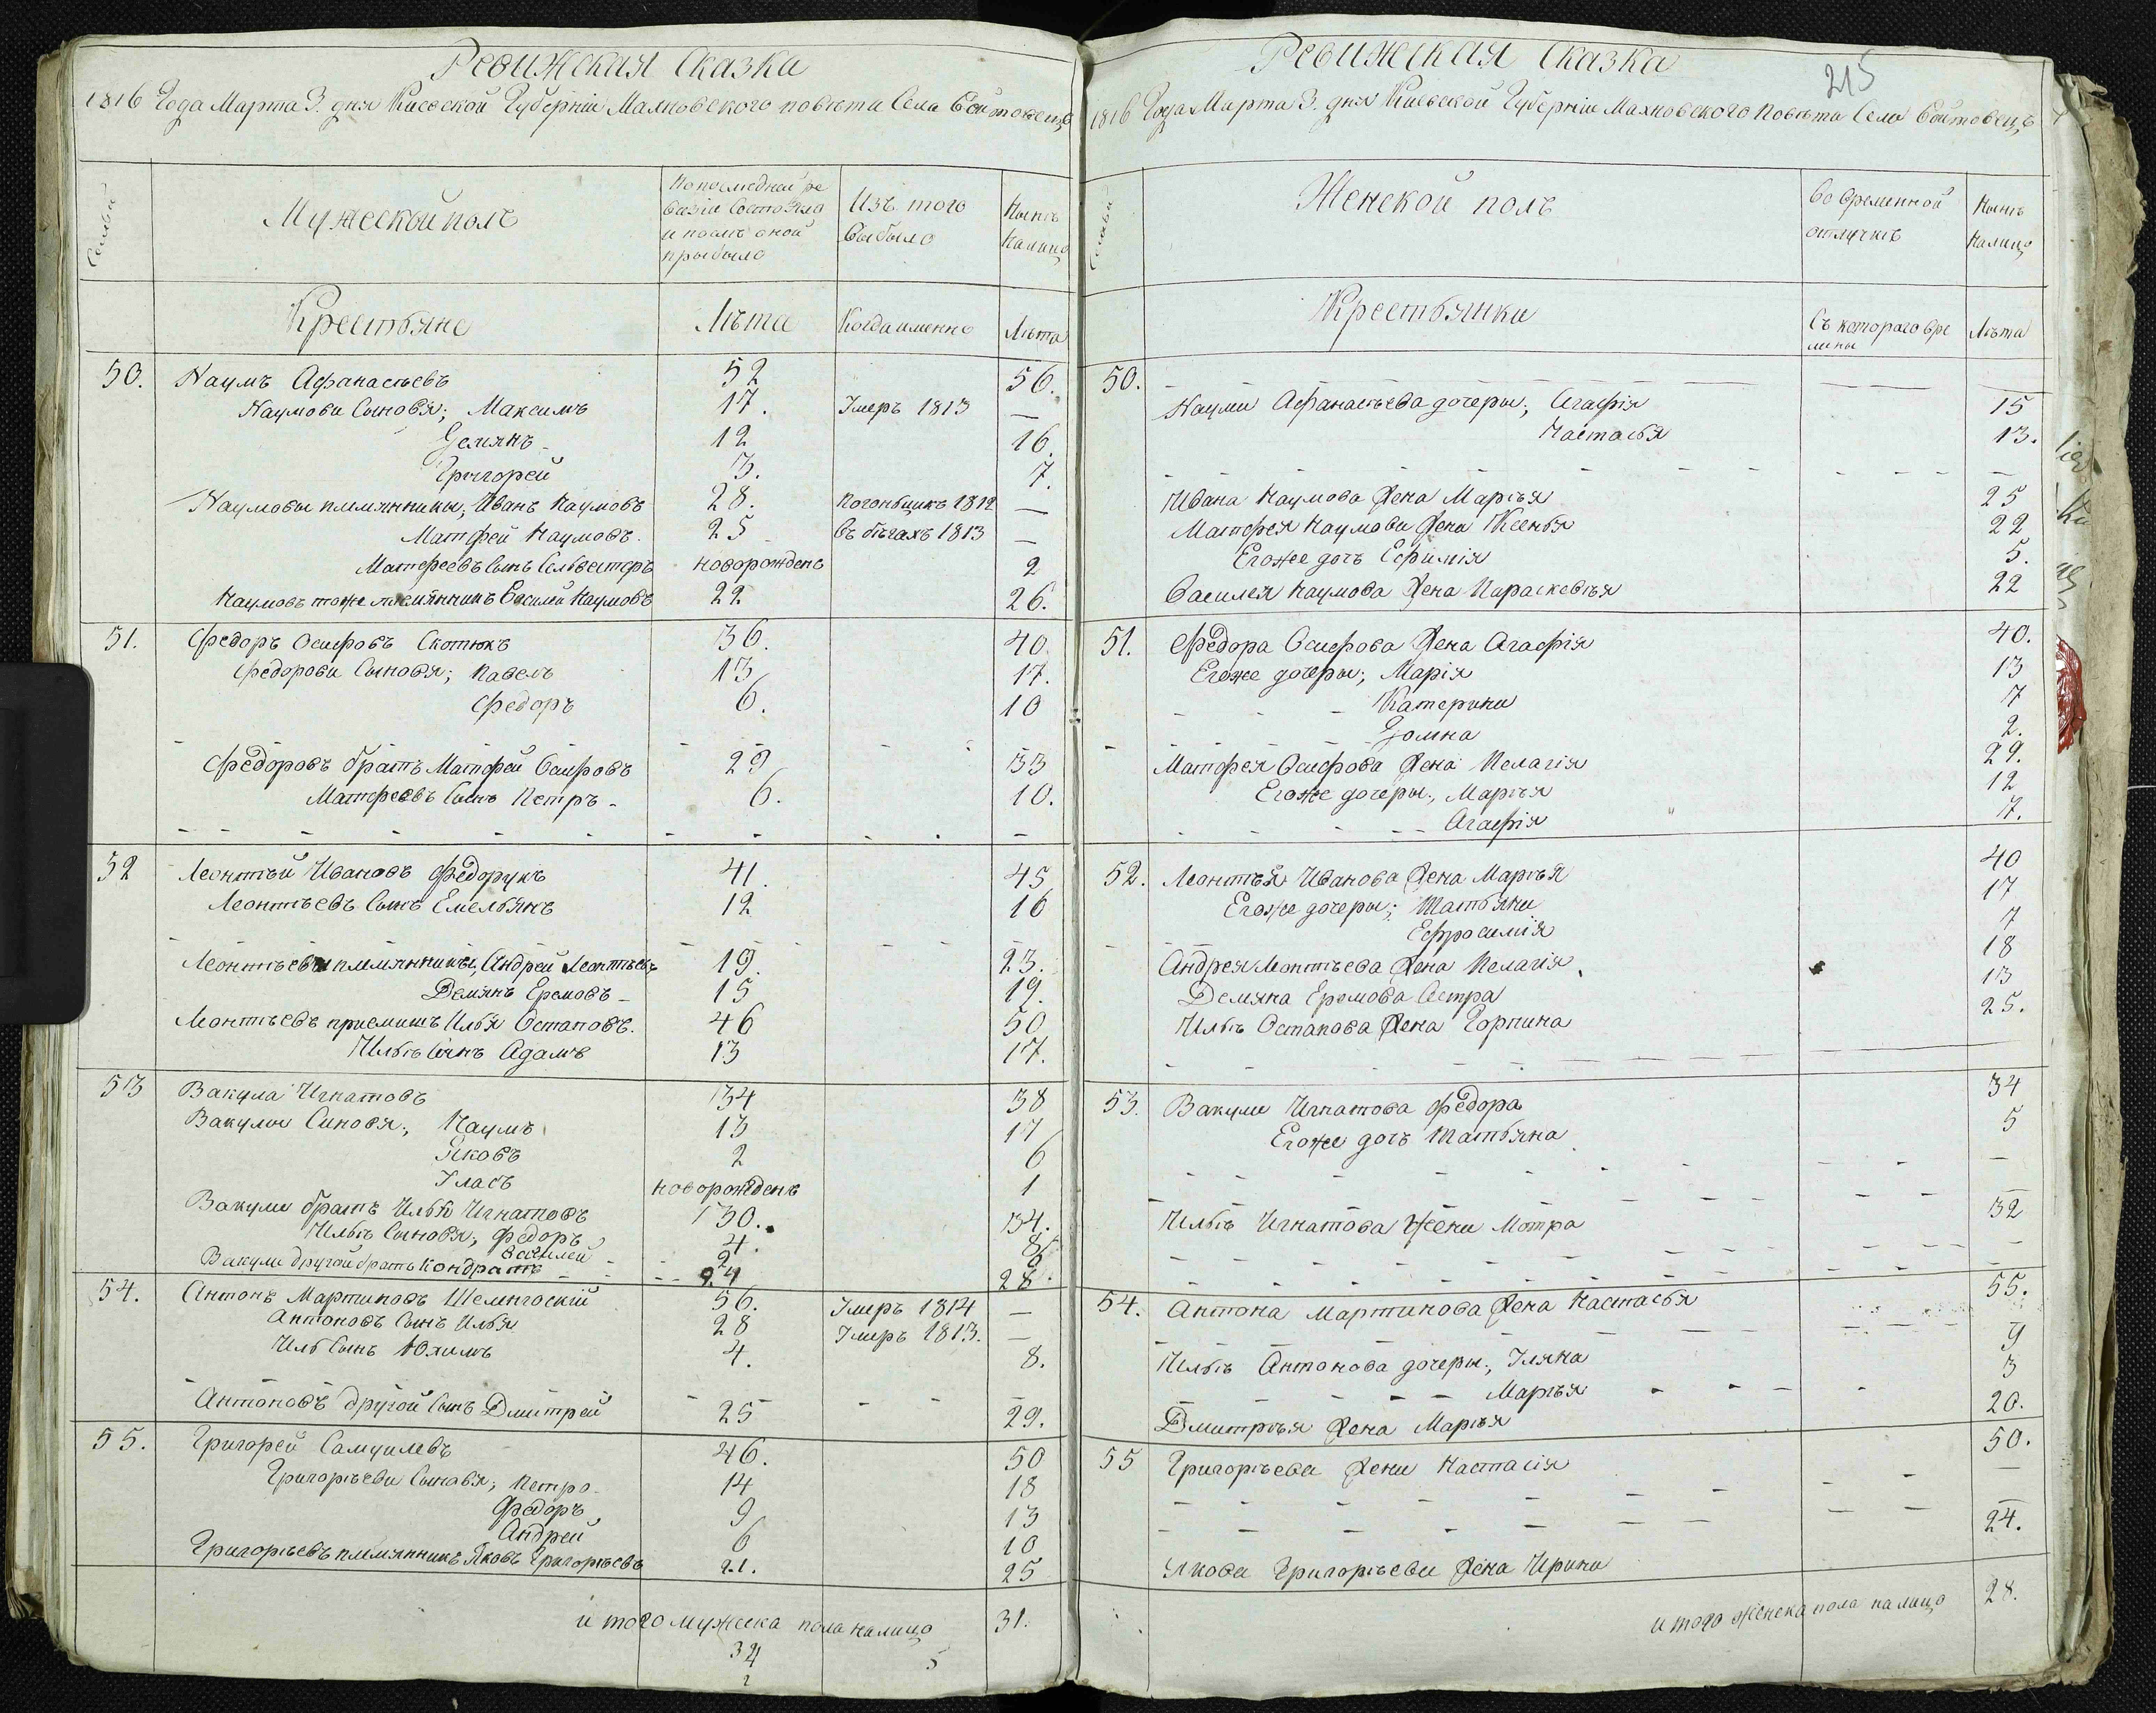 Ревижская Сказка
1816 Года Марта 3. дня Киевской Губерніи Махновского повѣта Села Войтовецъ
Семьи
Мужеской полъ
По последней ре
визіи состояло
и послѣ оной
прыбыло
Изъ того
выбыло
Нынѣ
налицо
Крестьяне
Лѣта
Когда именно
Лѣта
50. Наумъ Афанасьевъ 52 56.
Наумови Сыновя; Максимъ 17. Умеръ 1813 —
Демянъ 12 16.
Григорей 3. 7.
Наумовы племянники, Иванъ Наумовъ 28. Погонщикъ 1812 —
Матфей Наумовъ. 25 въ бѣгахъ 1813 —
Матфеевъ сынъ Селвестеръ новорожденъ 2
Наумовъ тоже племянникъ Василей Наумовъ 22 26.
51. Федоръ Осифовъ Скотюкъ 36. 40.
Федорови Сыновя; Павелъ 13 17.
Федоръ 6. 10
Федоровъ братъ Матфей Осифовъ 29 33
Матфеевъ Сынъ Петръ 6. 10.
52 Леонтѣй Ивановъ Федорукъ 41. 45
Леонтьевъ Сынъ Емельянъ 12 16
Леонтьевы племянники, Андрей Леонтьевъ 19. 23.
Демянъ Еремовъ 15 19.
Леонтьевъ приемишъ Илья Остаповъ. 46 50
Ильѣ Сынъ Адамъ 13 17.
53 Вакула Игнатовъ 34 38
Вакулы Синовя; Наумъ 13 17
Яковъ 2 6
Уласъ новорожденъ 1
Вакули братъ Илья Игнатовъ 30. 34.
Ильѣ Сыновя, Федоръ 4. 8
Василей 2 6
Вакули другой братъ Кондратъ 24 28.
54. Антонъ Мартиновъ Шелинговскій 56. Умеръ 1814 —
Антоновъ Сынъ Илья 28 Умеръ 1813. —
Иль Сынъ Юхимъ 4. 8.
Антоновъ другой Сынъ Дмитрей 25 29.
55. Григорей Самуилевъ 46. 50
Григорьеви Сыновя; Петро 14 18
Федоръ 9 13
Андрей 6 10
Григорьевъ племянникъ Яковъ Григорьевъ 21. 25
итого мужеска пола налицо 31.
34 5
2
Ревижская Сказка
215
1816 Года Марта 3. дня Киевской Губерніи Махновского Повѣта Села Войтовецъ
Семьи
Женской полъ
Во временной
отлучкѣ
Нынѣ
налицо
Крестьянки
Съ котораго вре
мины
Лѣта
50.
Наума Афанасьева дочеры; Агафія 15
Настасья 13.
Ивана Наумова Жена Марья 25
Матфея Наумови Жена Ксенья 22
Егоже дочъ Ефимія 5.
Василея Наумова Жена Параскевья 22
51. Федора Осифова Жена Агафія 40.
Егоже дочеры; Марія 13
Катерина 7
Домна 2.
Матфея Осифова Жена Пелагія 29.
Егоже дочеры; Марья 12
Агафія 7.
52. Леонтья Иванова Жена Марья 40
Егоже дочеры; Татьяни 17
Ефросимія 7
Андрея Леонтьева Жена Пелагія 18
Демяна Еремова Сестра 13
Ильѣ Остапова Жена Горпина 25.
53. Вакули Игнатова Федора 34
Егоже дочъ Татьяна 5
Ильѣ Игнатова Жена Мотра 32
54. Антона Мартинова Жена Настасья 55.
Ильѣ Антонова дочеры; Уляна 9
Марья 3
Дмитрья Жена Марья 20.
55 Григорьева Жени Настасія 50.
Якова Григорьева Жена Ирина 24.
итого женска пола налицо 28.